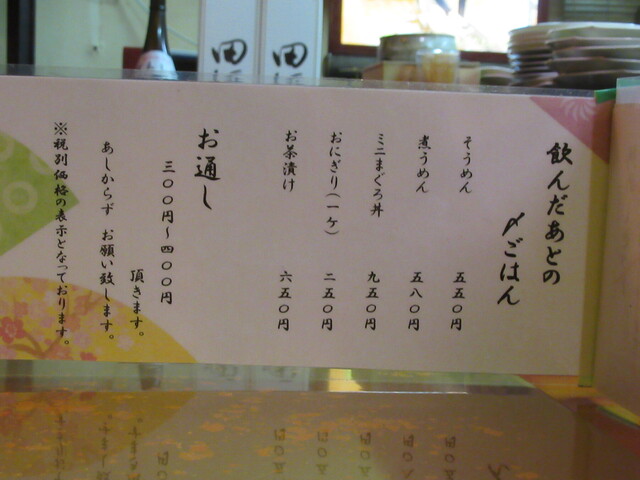 飲んだあとの
〆ごはん
そうめん 五五〇円
煮うめん 五八〇円
ミニまぐろ丼 九五〇円
おにぎり(一ケ) 二五〇円
お茶漬け 六五〇円
お通し
三〇〇円～四〇〇円
頂きます。
あしからず お願い致します。
※税別価格の表示となっております。
田
田